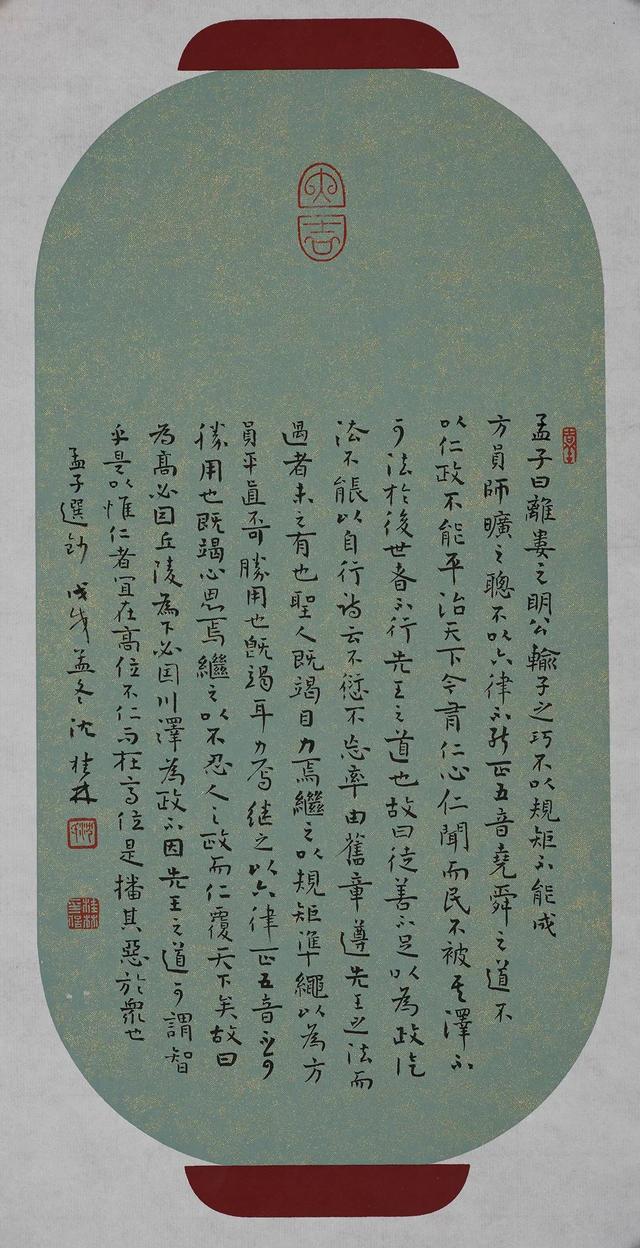 大吉
孟子曰離婁之明公輸子之巧不以規矩不能成
方員師曠之聰不以六律不能正五音堯舜之道不
以仁政不能平治天下今有仁心仁聞而民不被其澤不
可法於後世者不行先王之道也故曰徒善不足以為政徒
法不能以自行詩云不愆不忘率由舊章遵先王之法而
過者未之有也聖人既竭目力焉繼之以規矩準繩以為方
員平直不可勝用也既竭耳力焉繼之以六律正五音不可
勝用也既竭心思焉繼之以不忍人之政而仁覆天下矣故曰
為高必因丘陵為下必因川澤為政不因先王之道可謂智
乎是以惟仁者宜在高位不仁而在高位是播其惡於眾也
孟子選鈔 戊戌孟冬沈桂林